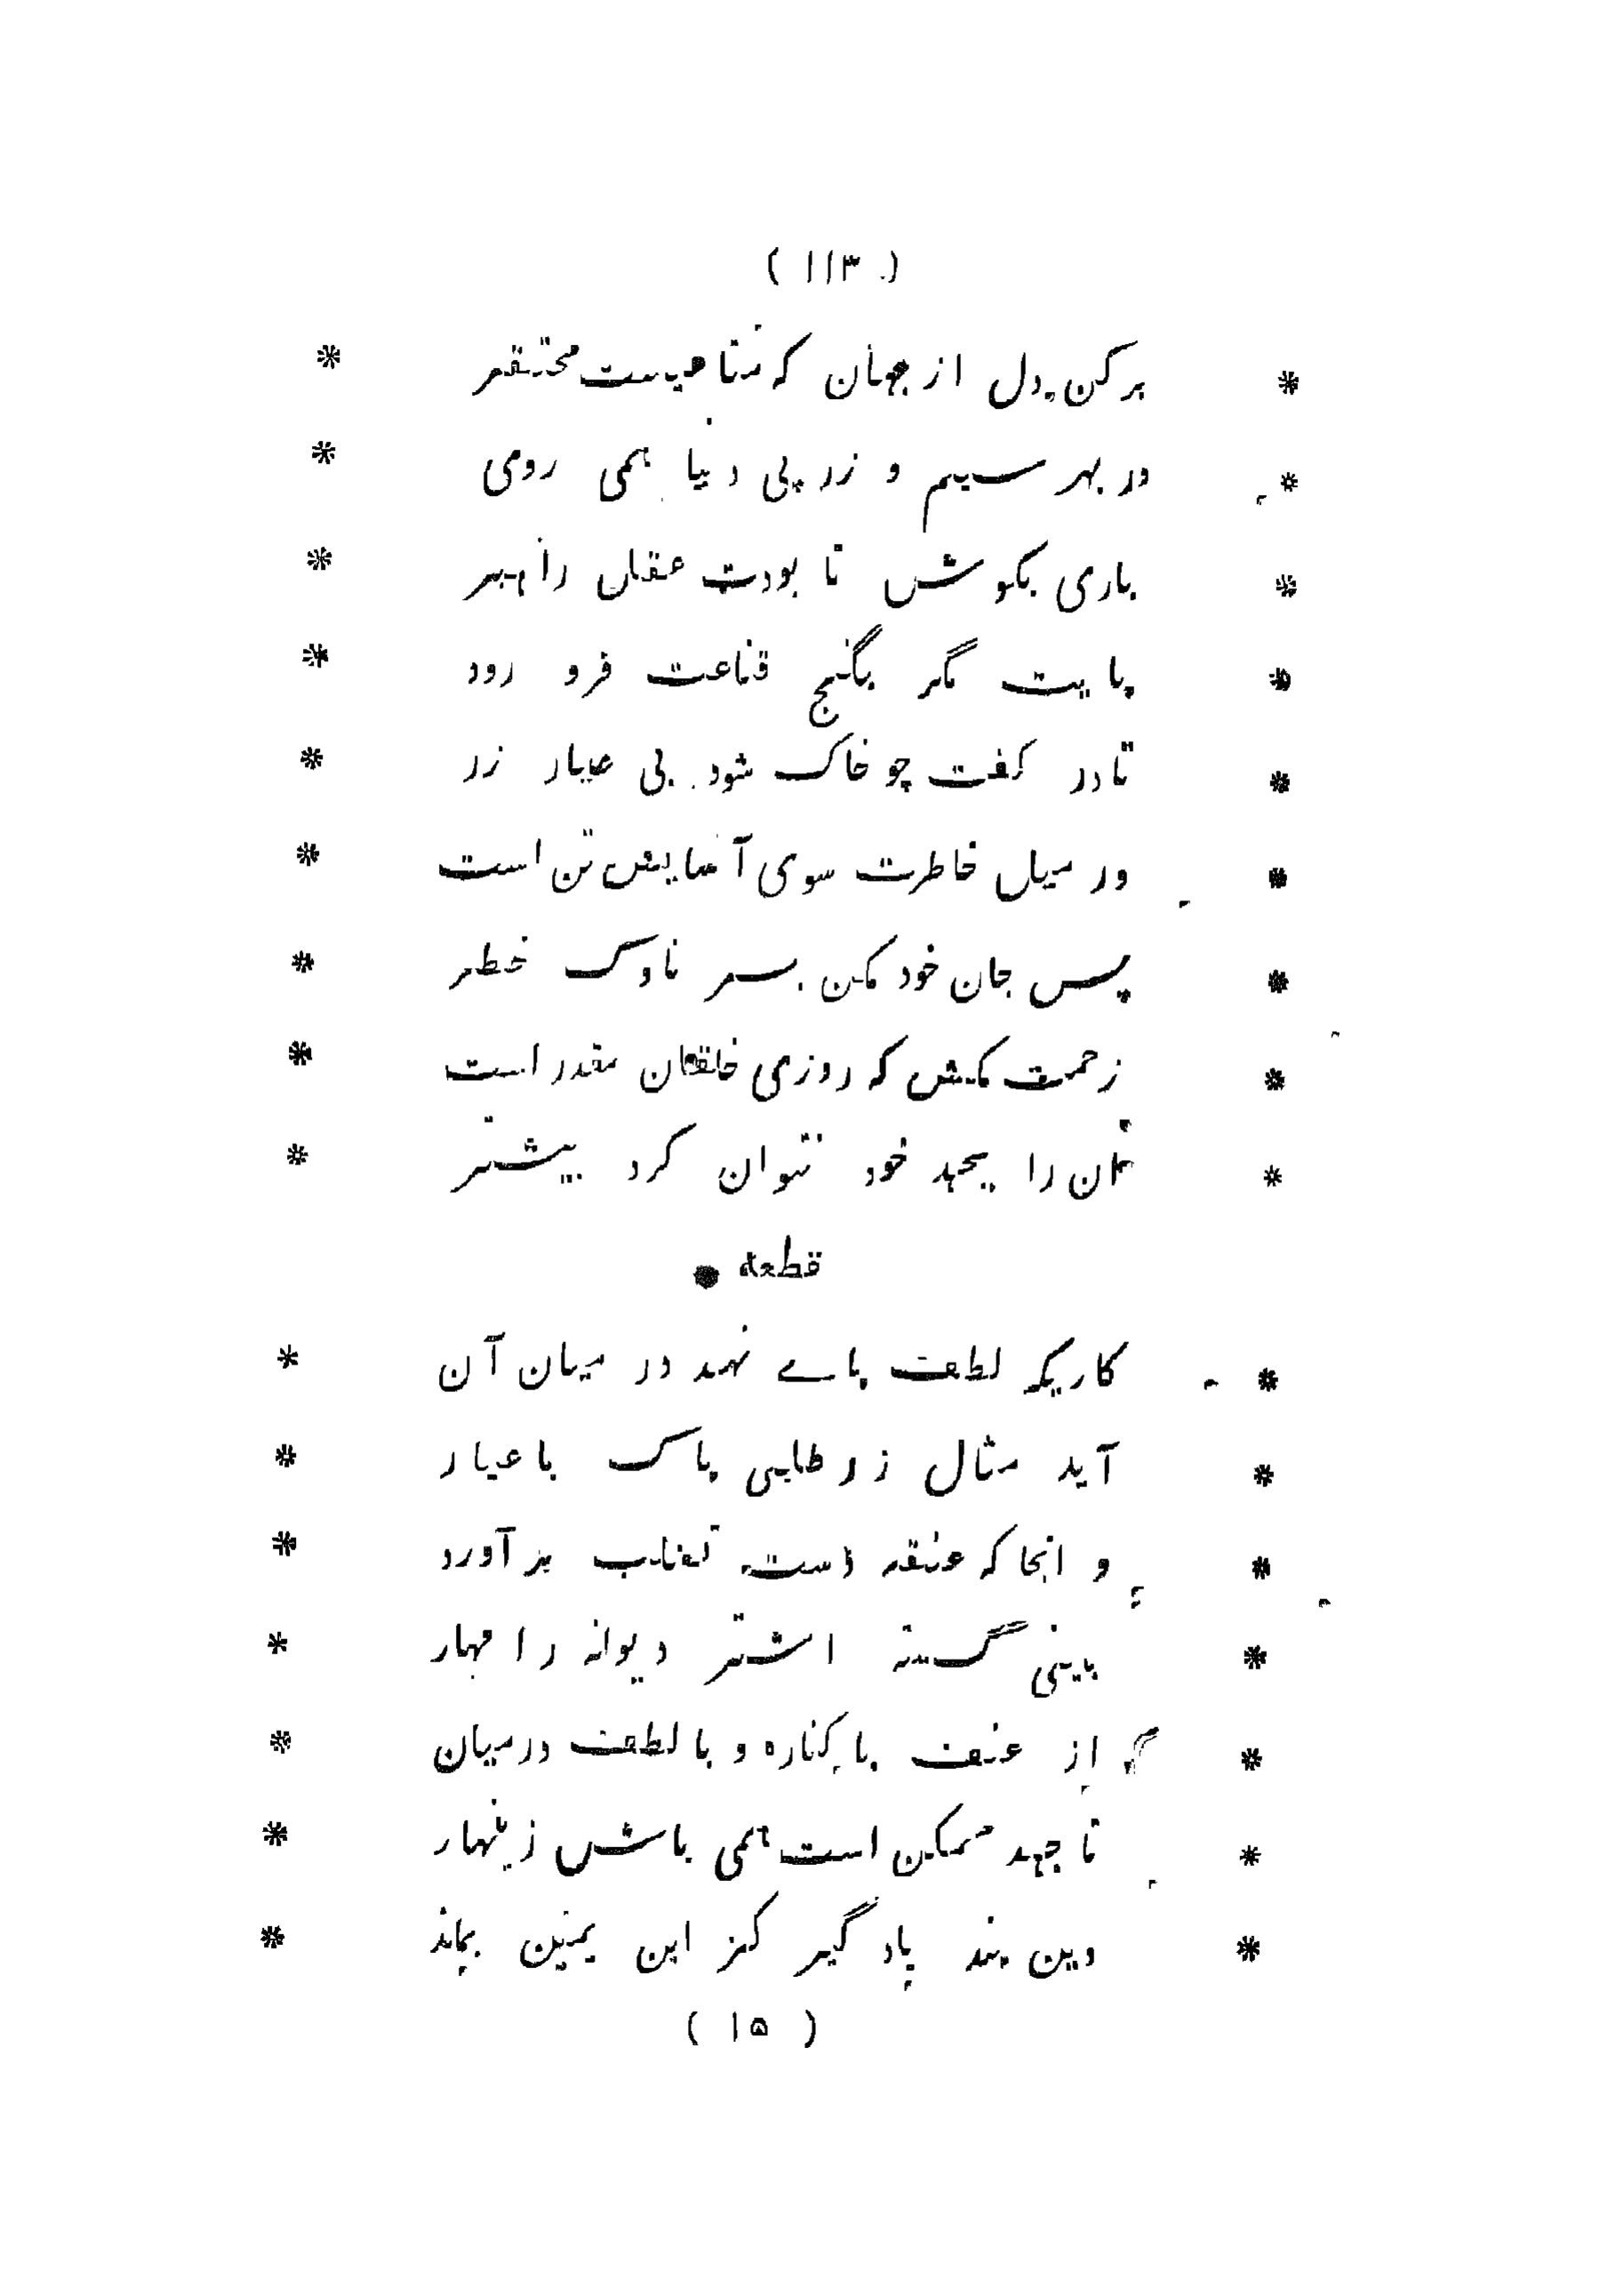 ( ۱۱۳ )
* برکن دل از جهان که متاعیست محتقر *
* ور بهر سیم و زر پی دنیا همی روی *
* باری بکوش تا بودت عقل راهبر *
* پایت مگر بگنج قناعت فرو رود *
* تا در کفت چو خاک شود بی عیار زر *
* ور میل خاطرت سوی آسایش تن است *
* پس جان خود مکن سپر ناوک خطر *
* زحمت مکش که روزی خلقان مقدر است *
* آن را بجهد خود نتوان کرد بیشتر *
قطعه
* کاریکه لطف پاے نهد در میان آن *
* آید مثال زر طلایی پاک با عیار *
* و انجا که عنف دست تغلب بر آورد *
* بینی گسسته اشتر دیوانه را مهار *
* از عنف با کناره و با لطف درمیان *
* تا جهد ممکن است همی باش زینهار *
* وین پند یاد گیر کز ابن یمین بماند *
( ۱۵ )